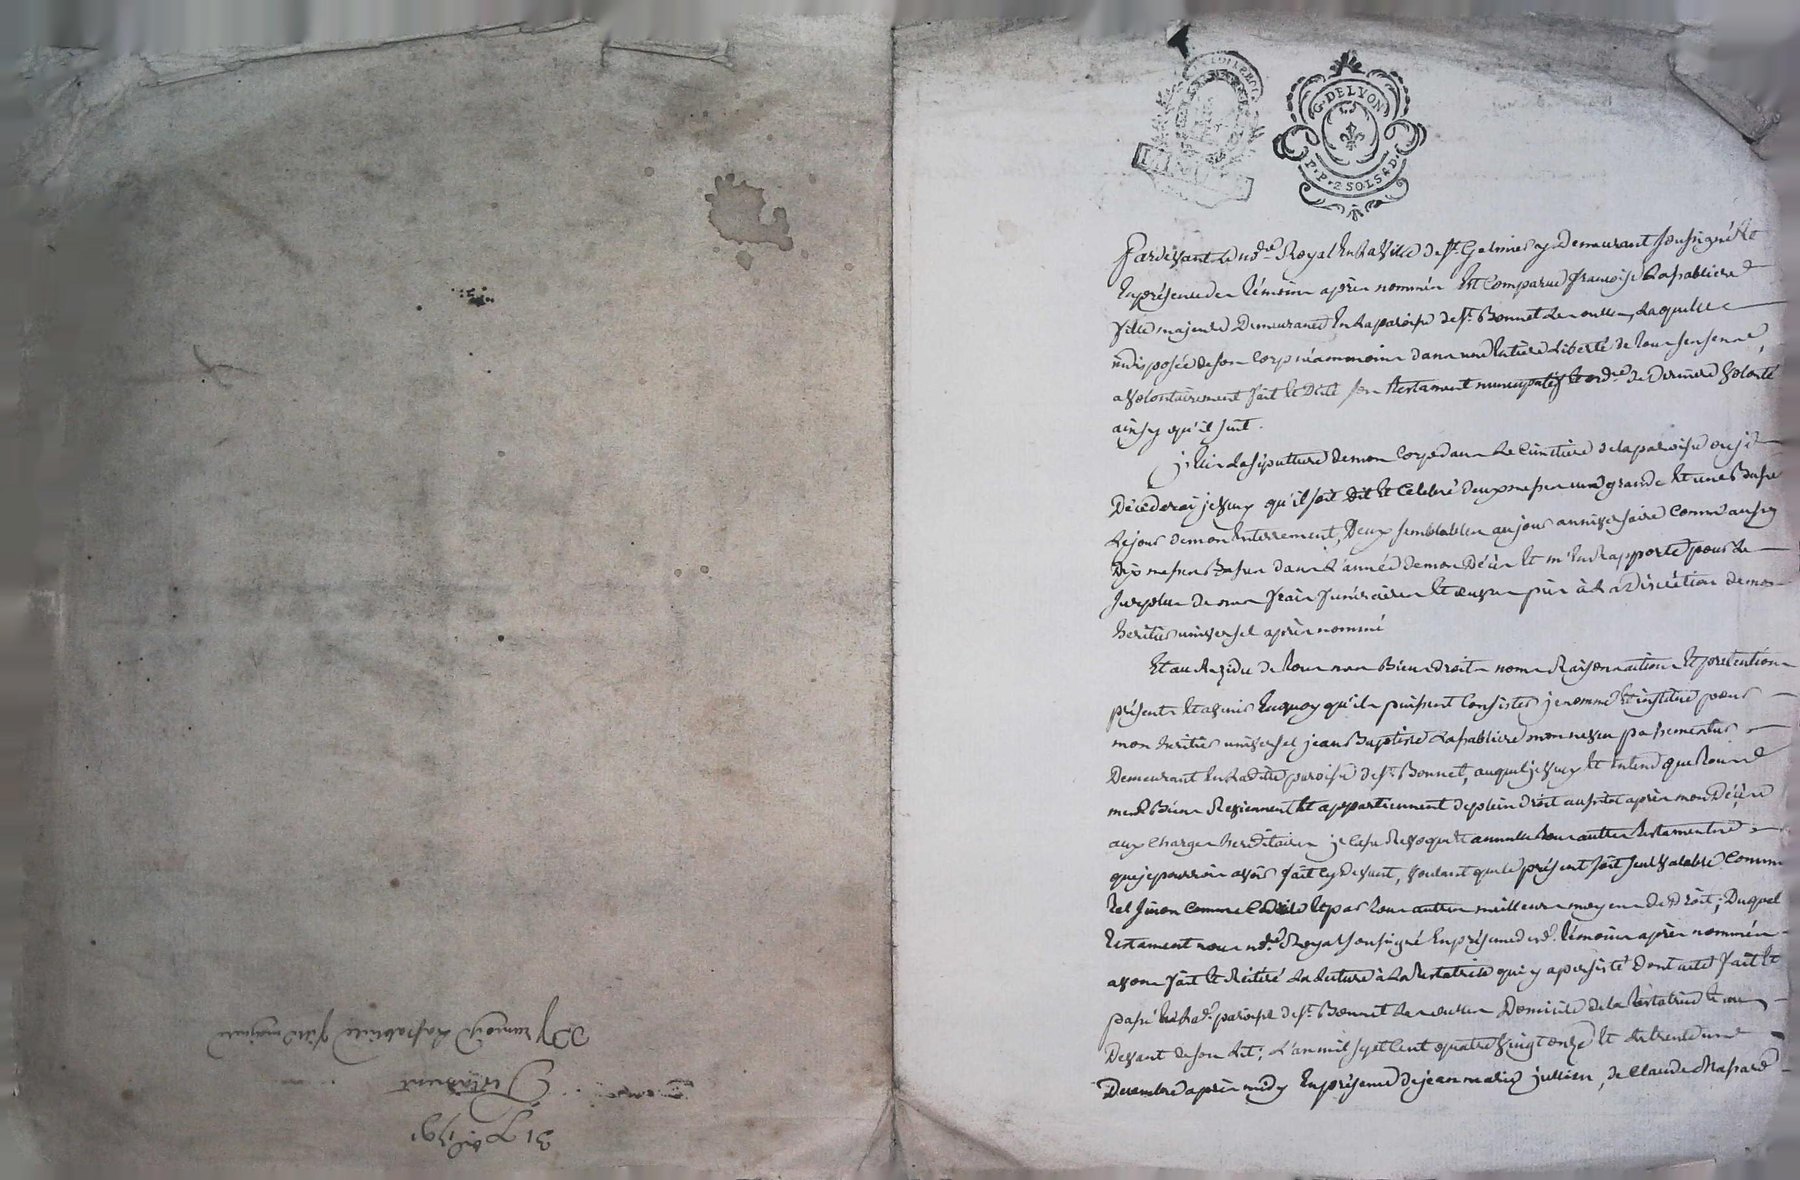 31 Xbre 1791
Testament
De françoise Lapabliere fille majeure
G. DE LYON
P. P. 2 SOLS 4 D
Pardevant le no.re Royal En la Ville de St. Galmier y Demeurant soussigné Et
En présence des témoins après nommés Est Comparue françoise Lasabliere
fille majeure Demeurante En la paroisse de St. Bonnet Les oulles, Laquelle
indisposée de son Corps néammoins dans une Entière Liberté de tous ses sens,
a volontairement fait Et Dicté son testament nuncupatif Et ord.ce de Derniere Volonté
ainsy qu'il suit.
j'Elis La sépulture de mon Corps dans Le Cimetiere de la paroisse ou je
Décéderay je veux qu'il soit Dit Et Celebré deux messes une grande Et une Basse
Le jour de mon Enterrement, Deux semblables au jour anniversaire Comme aussy
Dix messes Basses dans L'année de mon Décès Et m'En Rapporte pour Le
surplus de mes frais funéraires Et œuvres pies à La Discrétion de mon
héritier universel après nommé
Et au Rezidu de tous mes Biens droits noms Raisons actions Et prétentions
présents Et avenir En quoy qu'ils puissent Consister je nomme Et institue pour
mon héritier universel jean Baptiste Lasabliere mon neveu passementier
Demeurant En La dite paroisse de St. Bonnet, auquel je veux Et Entend que tous
mes Biens Reviennent Et appartiennent de plein droit aussitot après mon Décès
aux Charges héréditaires je Casse Revoque Et annulle tous autres testaments
que je pourrois avoir fait Cy devant, voulant que le présent soit seul valable Comme
tel sinon Comme Codicile Et par tous autres meilleurs moyens de Droit; Duquel
testament nous no.re Royal soussigné En présence des d. témoins après nommés
avons fait Et Réitéré La Lecture à La testatrice qui y a persisté dont acte fait Et
passé En La d. paroisse de St. Bonnet Les oulles Domicile de la testatrice Et au
Devant de son Lit, L'an mil sept Cent quatre Vingt onze Et Le trente un
Decembre après midy En présence de jean marie jullien, de Claude